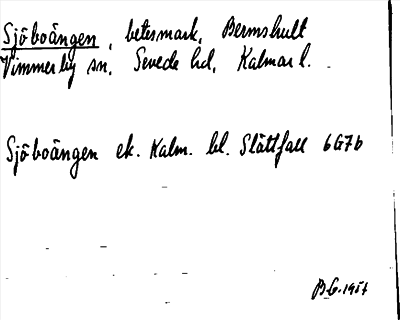 Sjöboängen, betesmark, Bermshult
Vimmerby sn, Sevede hd, Kalmar l.
Sjöboängen ek. Kalm. bl. Slättfall 6G7b
B.G. 1957